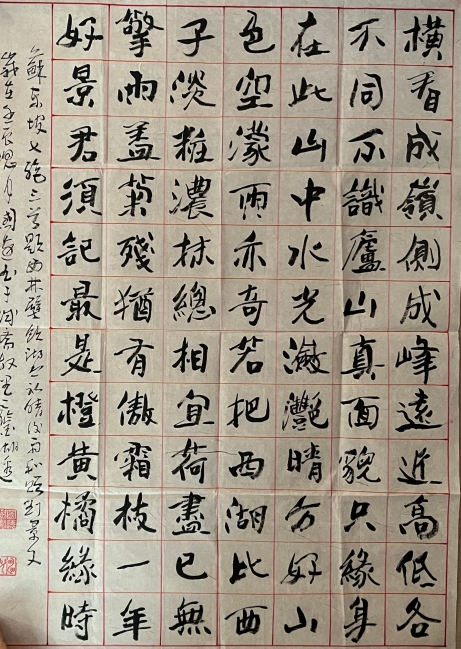 橫看成嶺側成峰遠近高低各
不同不識廬山真面貌只緣身
在此山中水光瀲灩晴方好山
色空濛雨亦奇若把西湖比西
子淡粧濃抹總相宜荷盡已無
擎雨蓋菊殘猶有傲霜枝一年
好景君須記最是橙黃橘緣時
蘇東坡七絕三首題西林壁飲湖上初晴後雨和贈劉景文
歲在壬辰